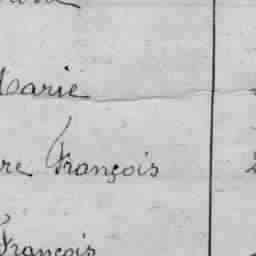 Marie
re François
François